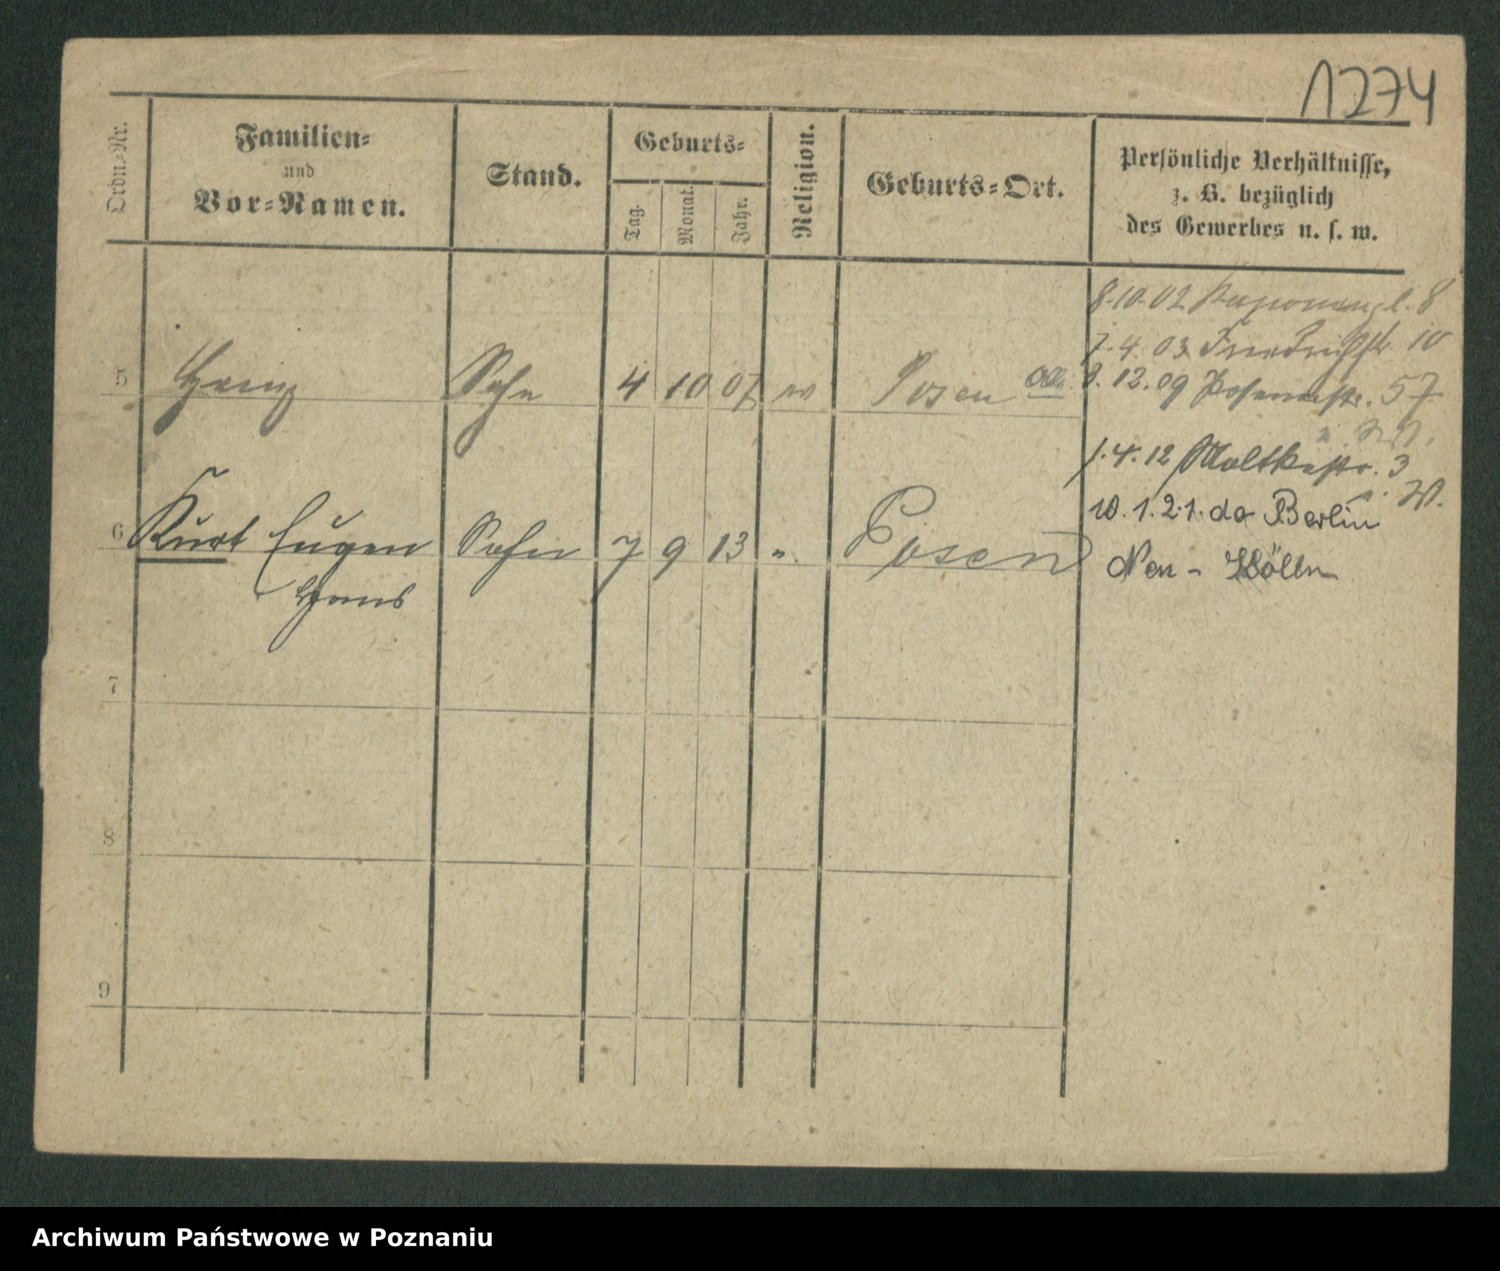 1274
Ordn.-Nr.
Familien-
und
Vor-Namen.
Stand.
Geburts-
Tag.
Monat.
Jahr.
Religion.
Geburts-Ort.
Persönliche Verhältnisse,
z. B. bezüglich
des Gewerbes u. s. w.
8.10.02 l. 8
7.4.03 Friedrichstr. 10
5 Heinz Sohn 4 10 07 Posen
8.12.09 Posenerstr. 57
1.4.12 Moltkestr. 3
W.
10.1.21. do Berlin
6 Kurt Eugen Sohn 7 9 13 ". Posen
Neu - Kölln
Hans
7
8
9
Archiwum Państwowe w Poznaniu